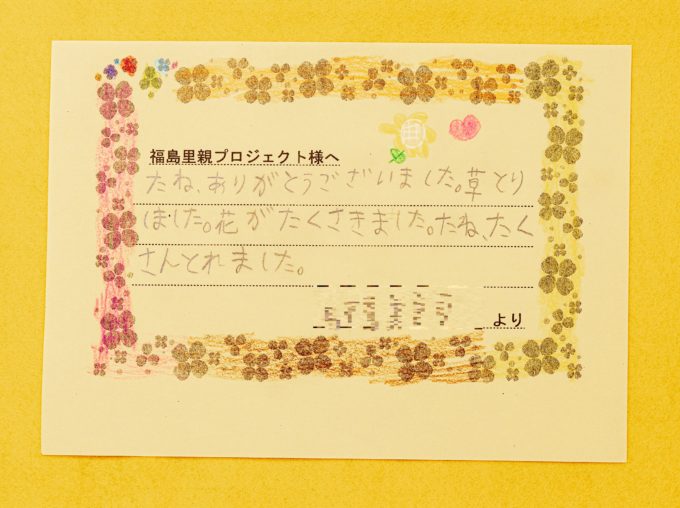 福島里親プロジェクト様へ
たね、ありがとうございました。草とり
ました。花がたくさきました。たね、たく
さんとれました。
より